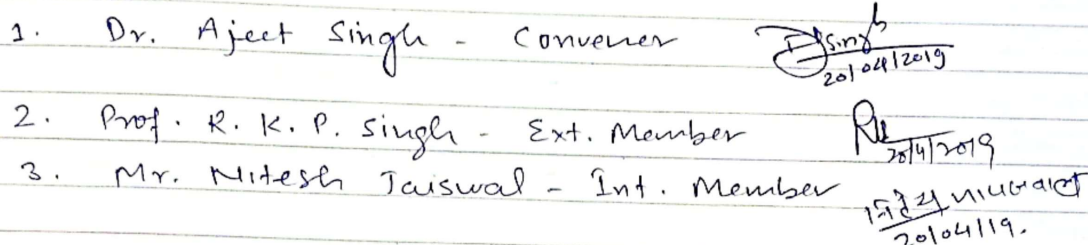 1. Dr. Ajeet Singh - Convener
20/04/2019
2. Prof. R. K. P. Singh - Ext. Member
20/4/2019
3. Mr. Nitesh Jaiswal - Int. Member
20/04/19.